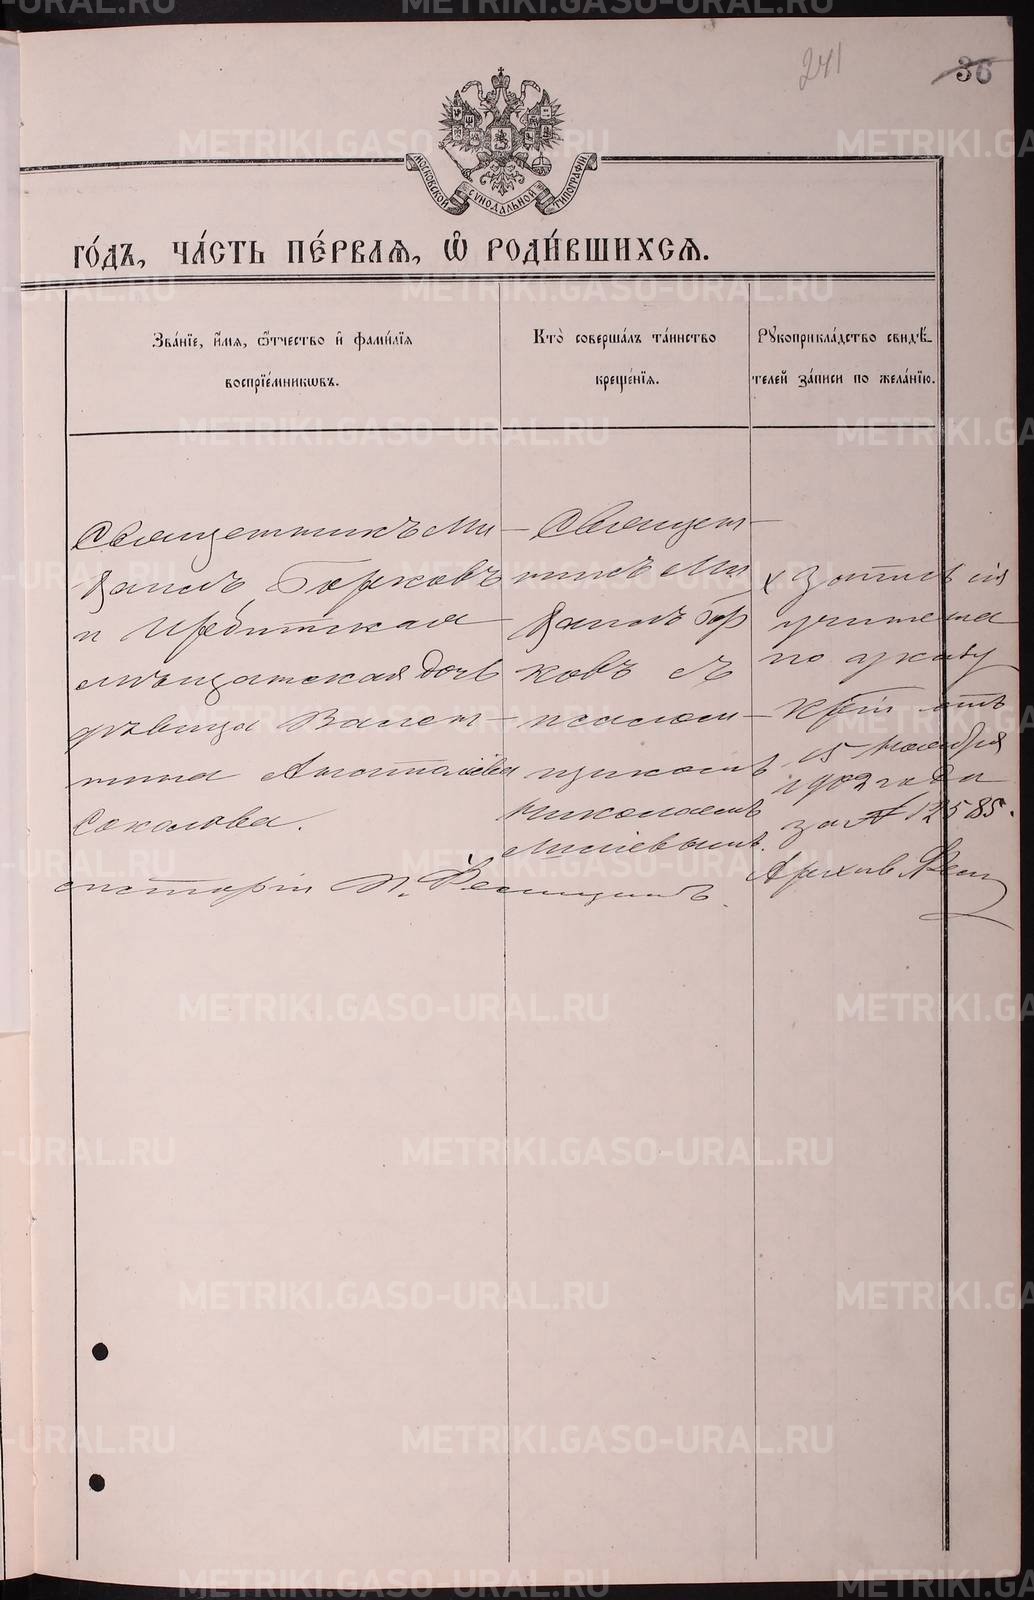 241
36
МОСКОВСКОЙ СУНОДАЛЬНОЙ ТИПОГРАФІИ
го́дъ, ча́сть пе́рваѧ, ѡ҆ роди́вшихсѧ.
Зва́нїе, и҆́мѧ, ѻ҆́тчество и҆ фами́лїѧ
воспрїе́мникѡвъ.
Кто̀ соверша́лъ та́инство
креще́нїѧ.
Рꙋкоприкла́дство свидѣ́-
телей за́писи по жела́нїю.
Священникъ Ми-
хаилъ Горковъ
и Ирбитская
мѣщанская дочь
дѣвица Вален-
тина Анатоліева
Соколова.
Священ-
никъ Ми
хаилъ Гор
ковъ съ
псалом-
щикомъ
Николаемъ
х Запись сія
учинена
по указу
отъ
15 Ноября
1902 года
за № 12585.
Архив
систоріи
METRIKI.GASO-URAL.RU